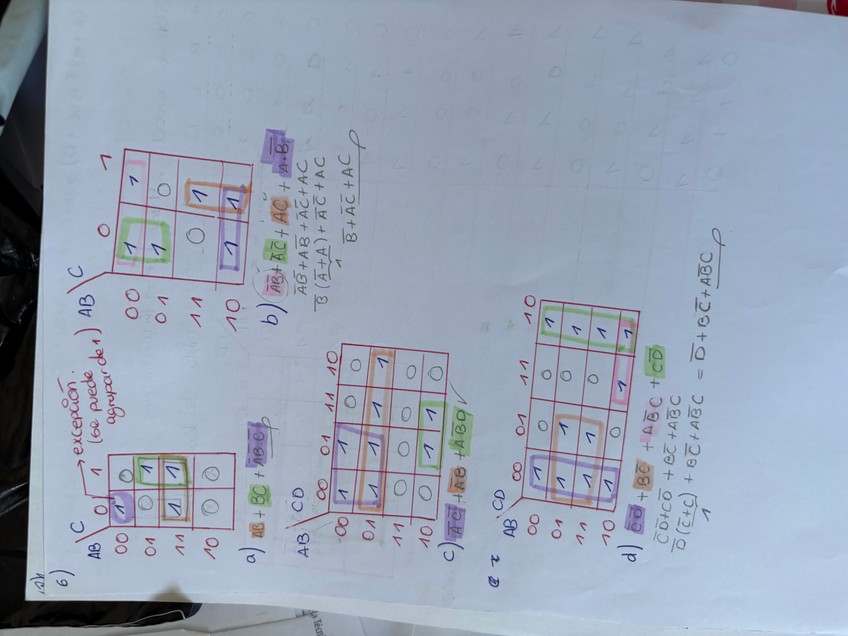 6)
AB C 0 1 → excepción.
(se puede
agrupar de 1)
00 1 0
01 0 1
11 1 1
10 0 0
a) AB + BC + A̅B̅C̅
AB C 0 1
00 1 1
01 1 0
11 0 1
10 1 1
b) A̅B̅ + A̅C̅ + AC + A·B̅
A̅B̅+AB̅+A̅C̅+AC
B̅(A̅+A)+A̅C̅+AC
1
B̅+A̅C̅+AC
AB CD 00 01 11 10
00 1 1 0 0
01 1 1 1 1
11 0 0 0 0
10 0 1 1 0
c) A̅C̅+A̅B+AB̅D
AB CD 00 01 11 10
00 1 0 0 1
01 1 1 0 1
11 1 1 0 1
10 1 0 1 1
d) C̅D̅ + BC̅ + AB̅C + CD̅
C̅D̅+CD̅+BC̅+AB̅C
D̅(C̅+C)+BC̅+AB̅C = D̅+BC̅+AB̅C
1